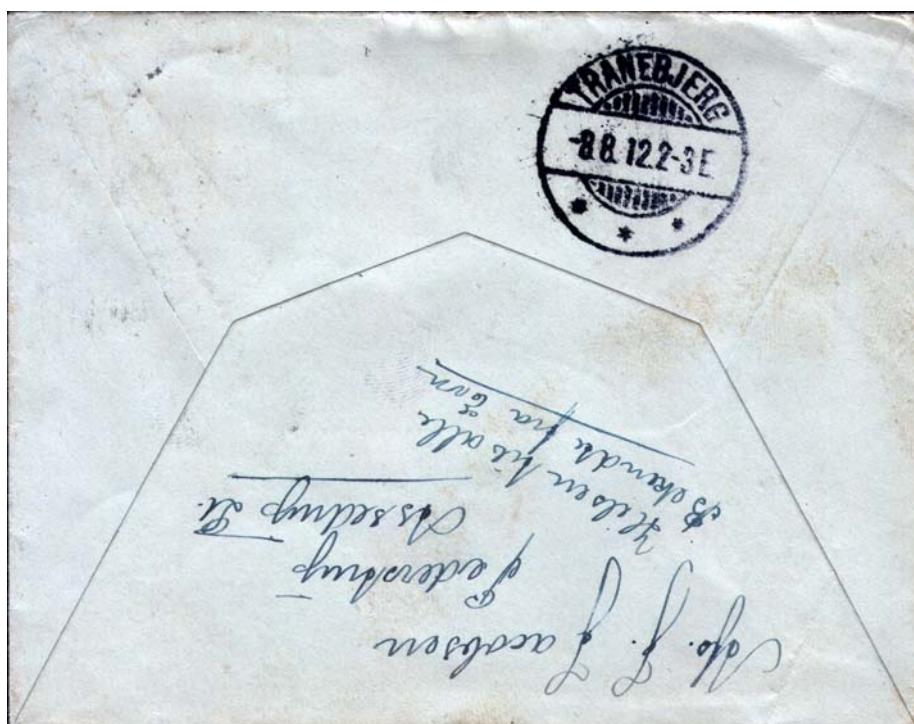 TRANEBJERG
-8.8.12.2-3E
Afs. J. Jacobsen
Pederstrup
Assedrup St.
Hilsen hils alle
Bekendte fra Ern